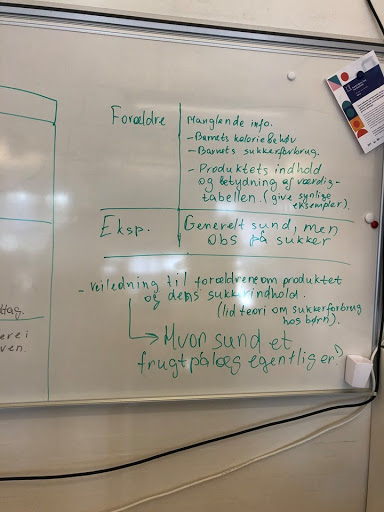 Forældre
Manglende info.
- Barnets kaloriebehov
- Barnets sukkerforbrug.
- Produktets indhold
og betydning af værdi-
tabellen. (give synlige
eksempler).
Eksp.
Generelt sund, men
obs på sukker
- vejledning til forældrene om produktet
og dens sukkerindhold.
(lid teori om sukkerforbrug
hos børn).
→ Hvor sund et
frugtpålæg egentlig er?
ttag.
erei
ven.